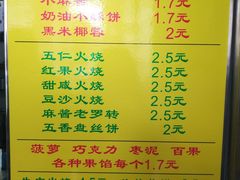 小麻酱 1.7元
奶油小酥饼 1.7元
黑米椰蓉 2元
五仁火烧 2.5元
红果火烧 2.5元
甜咸火烧 2.5元
豆沙火烧 2.5元
麻酱老罗转 2.5元
五香盘丝饼 2元
菠萝 巧克力 枣泥 百果
各种果馅每个1.7元